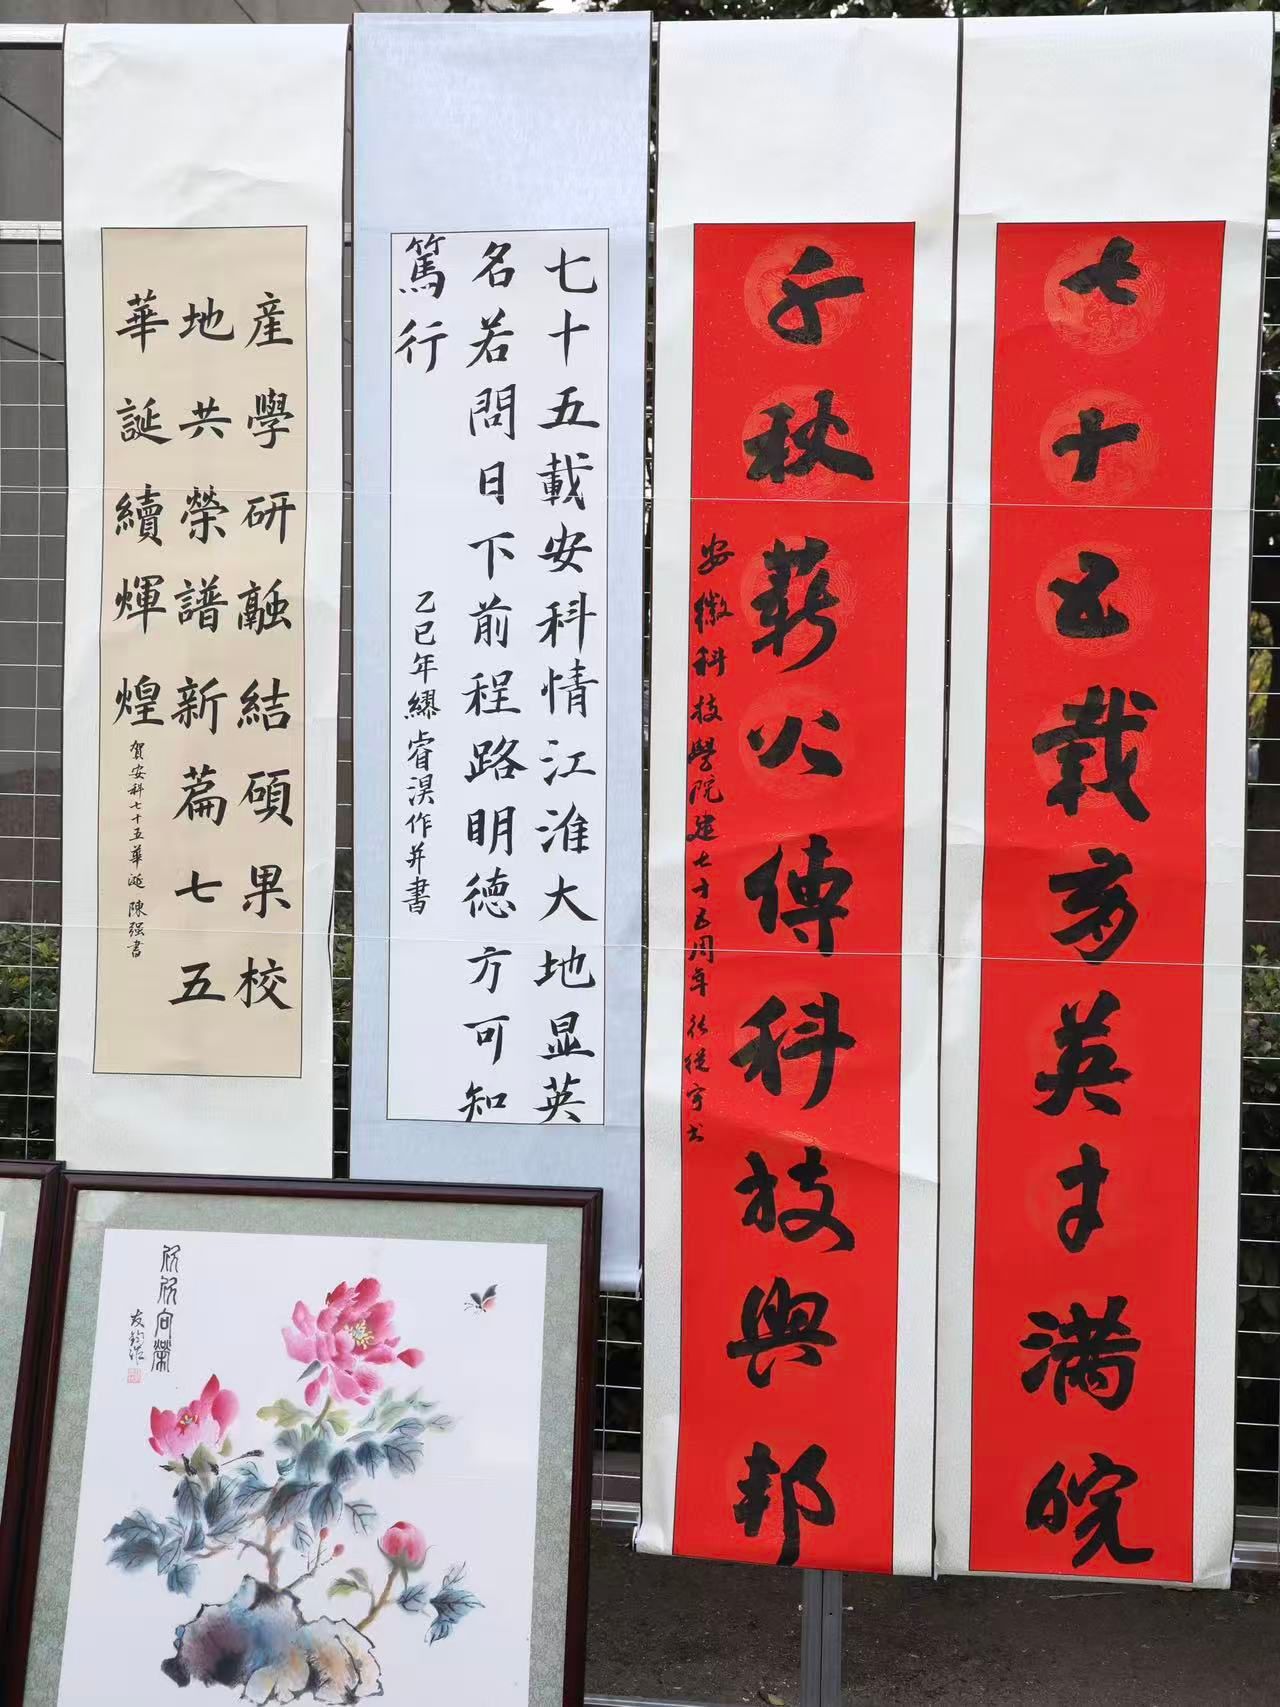 七十五载育英才满皖
千秋薪火传科技兴邦
安徽科技學院建七十五周年
七十五載安科情江淮大地显英
名若問日下前程路明德方可知
篤行
乙巳年繆睿淏作并書
産學研融結碩果校
地共榮譜新篇七五
華誕續輝煌
賀安科七十五華誕 陳强書
欣欣向榮